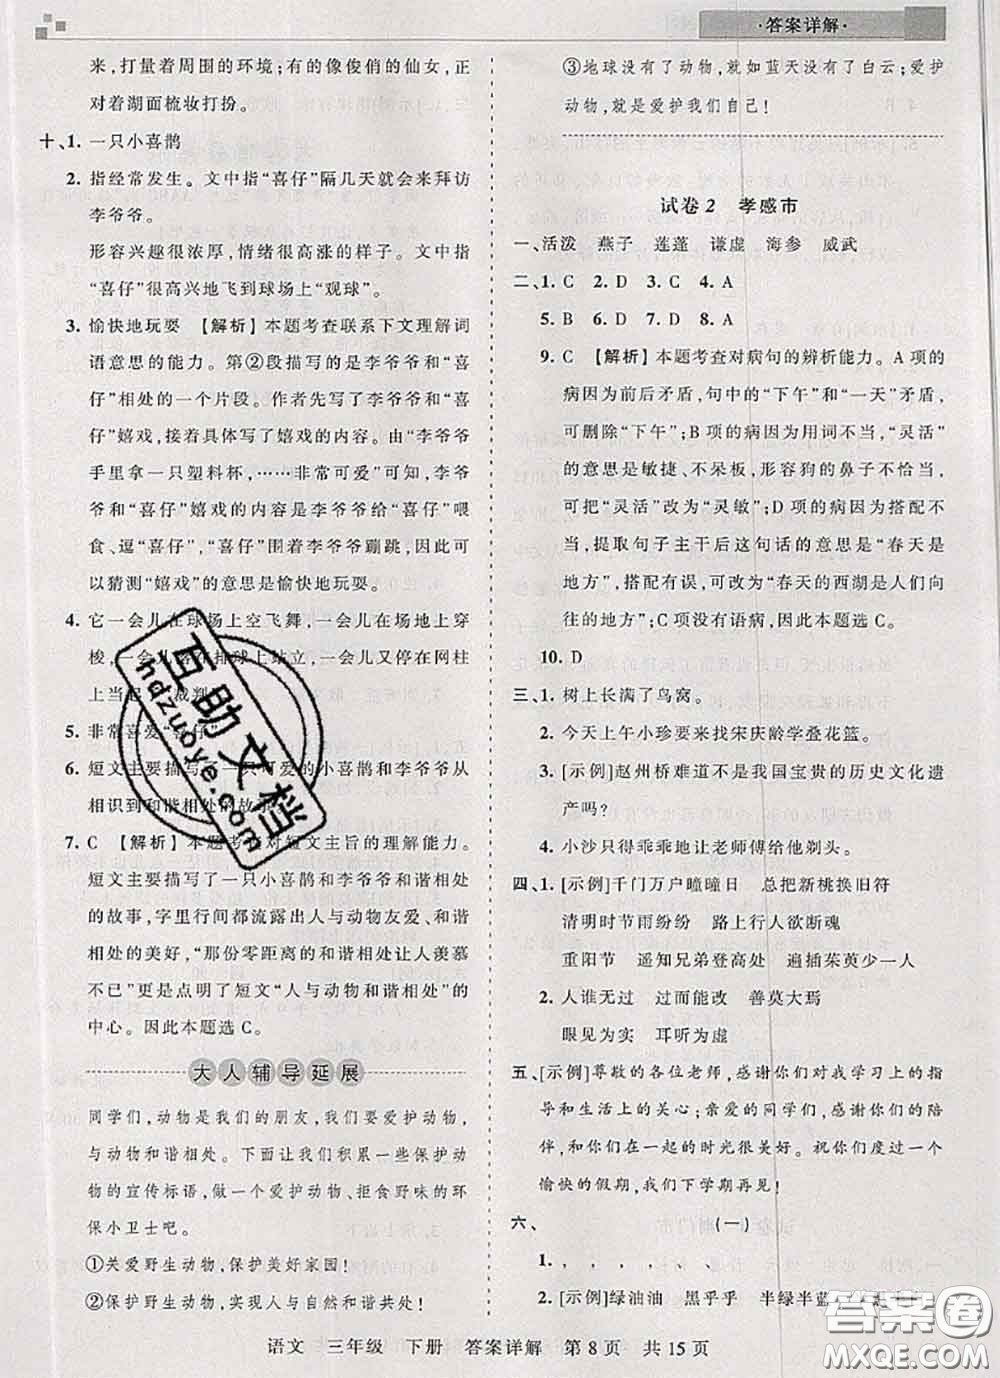 ·答案详解·
来，打量着周围的环境；有的像俊俏的仙女，正
对着湖面梳妆打扮。
十、1. 一只小喜鹊
2. 指经常发生。文中指“喜仔”隔几天就会来拜访
李爷爷。
形容兴趣很浓厚，情绪很高涨的样子。文中
指“喜仔”很高兴地飞到球场上“观球”。
3. 愉快地玩耍 【解析】本题考查联系下文理解词
语意思的能力。第②段描写的是李爷爷和“喜
仔”相处的一个片段。作者先写了李爷爷和“喜
仔”嬉戏，接着具体写了嬉戏的内容。由“李爷爷
手里拿一只塑料杯，……非常可爱”可知，李爷
爷和“喜仔”嬉戏的内容是李爷爷给“喜仔”喂
食、逗“喜仔”，“喜仔”围着李爷爷蹦跳，因此可
以猜测“嬉戏”的意思是愉快地玩耍。
4. 它一会儿在球场上空飞舞，一会儿在场地上穿
梭，一会儿落在排球上站立，一会儿又停在网柱
上当起了“裁判”
5. 非常喜爱“喜仔”
6. 短文主要描写了一只可爱的小喜鹊和李爷爷从
相识到和谐相处的故事。
7. C 【解析】本题考查对短文主旨的理解能力。
短文主要描写了一只小喜鹊和李爷爷和谐相处
的故事，字里行间都流露出人与动物友爱、和谐
相处的美好，“那份零距离的和谐相处让人羡慕
不已”更是点明了短文“人与动物和谐相处”的
中心。因此本题选C。
大人辅导延展
同学们，动物是我们的朋友，我们要爱护动物，
与动物和谐相处。下面让我们积累一些保护动
物的宣传标语，做一个爱护动物、拒食野味的环
保小卫士吧。
①关爱野生动物，保护美好家园！
②保护野生动物，实现人与自然和谐共处！
③地球没有了动物，就如蓝天没有了白云；爱护
动物，就是爱护我们自己！
试卷2 孝感市
一、活泼 燕子 莲蓬 谦虚 海参 威武
二、1. C 2. D 3. C 4. A
5. B 6. D 7. D 8. A
9. C 【解析】本题考查对病句的辨析能力。A项的
病因为前后矛盾，句中的“下午”和“一天”矛盾，
可删除“下午”；B项的病因为用词不当，“灵活”
的意思是敏捷、不呆板，形容狗的鼻子不恰当，
可把“灵活”改为“灵敏”；D项的病因为搭配不
当，提取句子主干后这句话的意思是“春天是
地方”，搭配有误，可改为“春天的西湖是人们向
往的地方”；C项没有语病，因此本题选C。
10. D
三、1. 树上长满了鸟窝。
2. 今天上午小珍要来找宋庆龄学叠花篮。
3. [示例]赵州桥难道不是我国宝贵的历史文化遗
产吗？
4. 小沙只得乖乖地让老师傅给他剃头。
四、1. [示例]千门万户曈曈日 总把新桃换旧符
清明时节雨纷纷 路上行人欲断魂
重阳节 遥知兄弟登高处 遍插茱萸少一人
2. 人谁无过 过而能改 善莫大焉
眼见为实 耳听为虚
五、[示例]尊敬的各位老师，感谢你们对我学习上的指
导和生活上的关心；亲爱的同学们，感谢你们的陪
伴，和你们在一起的时光很美好。祝你们度过一个
愉快的假期，我们下学期再见！
六、 （一）
1. ， ， ， ， 、 、 。
2. [示例]绿油油 黑乎乎 半绿半蓝
语文 三年级 下册 答案详解 第8页 共15页
互助文档
hdzuoye.com
答案圈
MXQE.COM